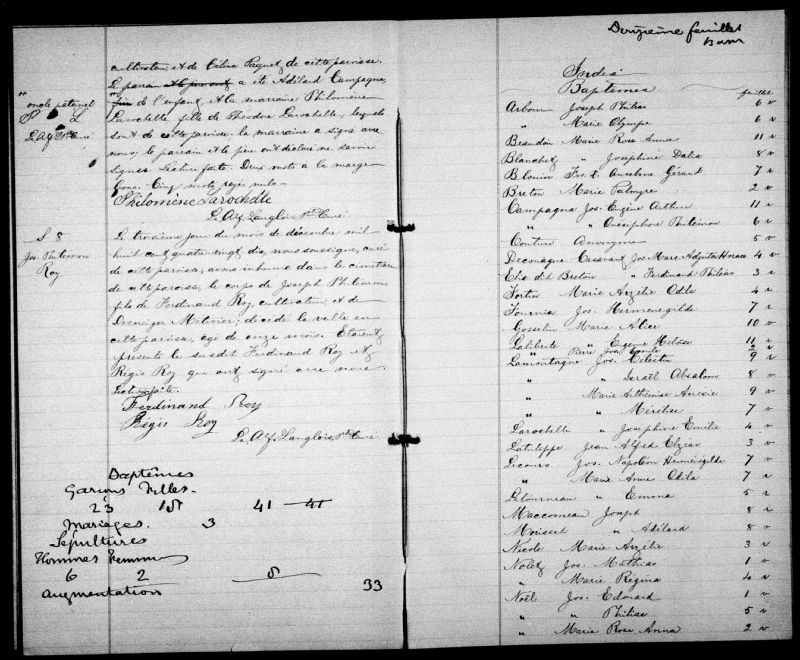 cultivateur et de Célina Paquet de cette paroisse.
Le parrain a été Adélard Campagna,
de l'enfant, et la marraine Philomène
Larochelle, fille de Théodore Larochelle, lesquels
sont de cette paroisse. la marraine a signé avec
nous; le parrain et le père ont déclaré ne savoir
signer. Lecture faite. Deux mots à la marge
bons. Cinq mots rayés nuls.
Philomène Larochelle
L. Alf. Langlois, Ptre Curé.
oncle paternel
P. L
L. Alf. Ptre Curé
S 8
Jos. Philemon
Roy
Le troisième jour du mois de décembre mil
huit cent quatre-vingt, dix, nous soussigné, curé
de cette paroisse, avons inhumé dans le cimetière
de cette paroisse, le corps de Joseph Philemon
fils de Ferdinand Roy, cultivateur, et de
Metivier; décédé la veille en
cette paroisse, âgé de onze mois. Etaient
présents le susdit Ferdinand Roy et
Régis Roy qui ont signé avec nous.
Lecture faite.
Ferdinand Roy
Régis Roy
L. Alf. Langlois, Ptre Curé
Baptêmes
Garçons Filles.
23 18 41 41
Mariages. 3
Sépultures
Hommes Femmes
6 2 8
Augmentation 33
Douzième feuillet
Index
Baptêmes
feuillet
Arbour Joseph Philias 6 v
" Marie Olympe 6 v
Beaudoin Marie Rose Anna 11 v
Blanchet " Josephine Dalia 8 v
Blouin Frs. X. Anselme Gérard 7 v
Breton Marie Palmyre 2 v
Campagna Jos. Eugène Arthur 11 v
" " Onesiphore Philemon 6 v
Couture Anonyme 5 v
Decouagne Casavant Jos. Marie Adjutor Horace 4 v
Elie dit Breton " Ferdinand Philias 3 v
Fortin Marie Arzélie Odila 4 v
Fournier Jos. Hermenegilde 7 v
Gosselin Marie Alice 10 v
Laliberté " Eugénie 11 v
" 2 v
Lamontagne Jos. Célestin 9 v
" " Israël Absalom 8 v
" Marie Arthémise 9 v
" " 7 v
Larochelle " Josephine Emélie 4 v
Latulippe Jean Alfred Elzéar 3 v
Lecours Jos. Napoléon Herménégilde 7 v
" Marie Anne Odila 7 v
Létourneau " Emma 5 v
Maccorneau Joseph 8 v
Morisset " Adélard 8 v
Nicole Marie Arzélie 3 v
Nolet Jos. Mathias 1 v
" Marie Regina 4 v
Noël Jos. Edouard 1 v
" " Philias 5 v
" Marie Rose Anna 2 v